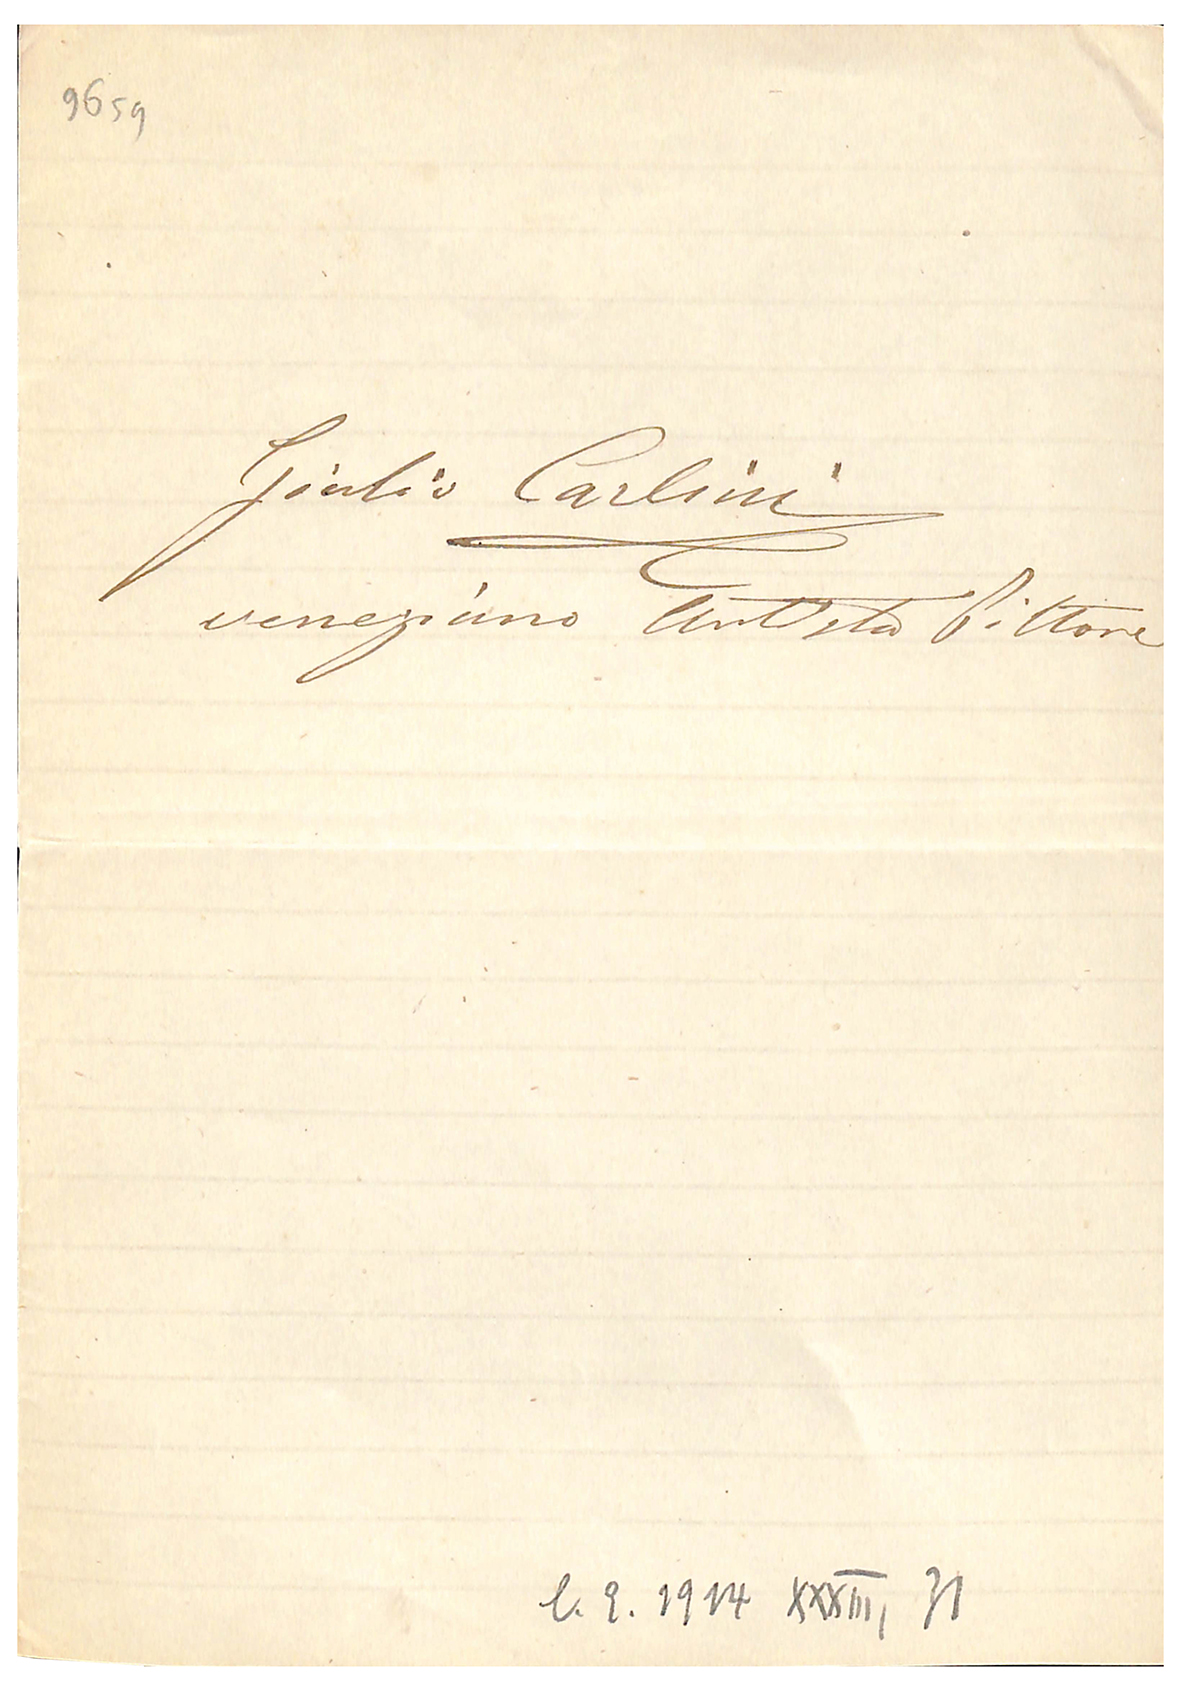 9659
Giulio Carlini
veneziano Artista Pittore
l. g. 1914 XXXIII, 31